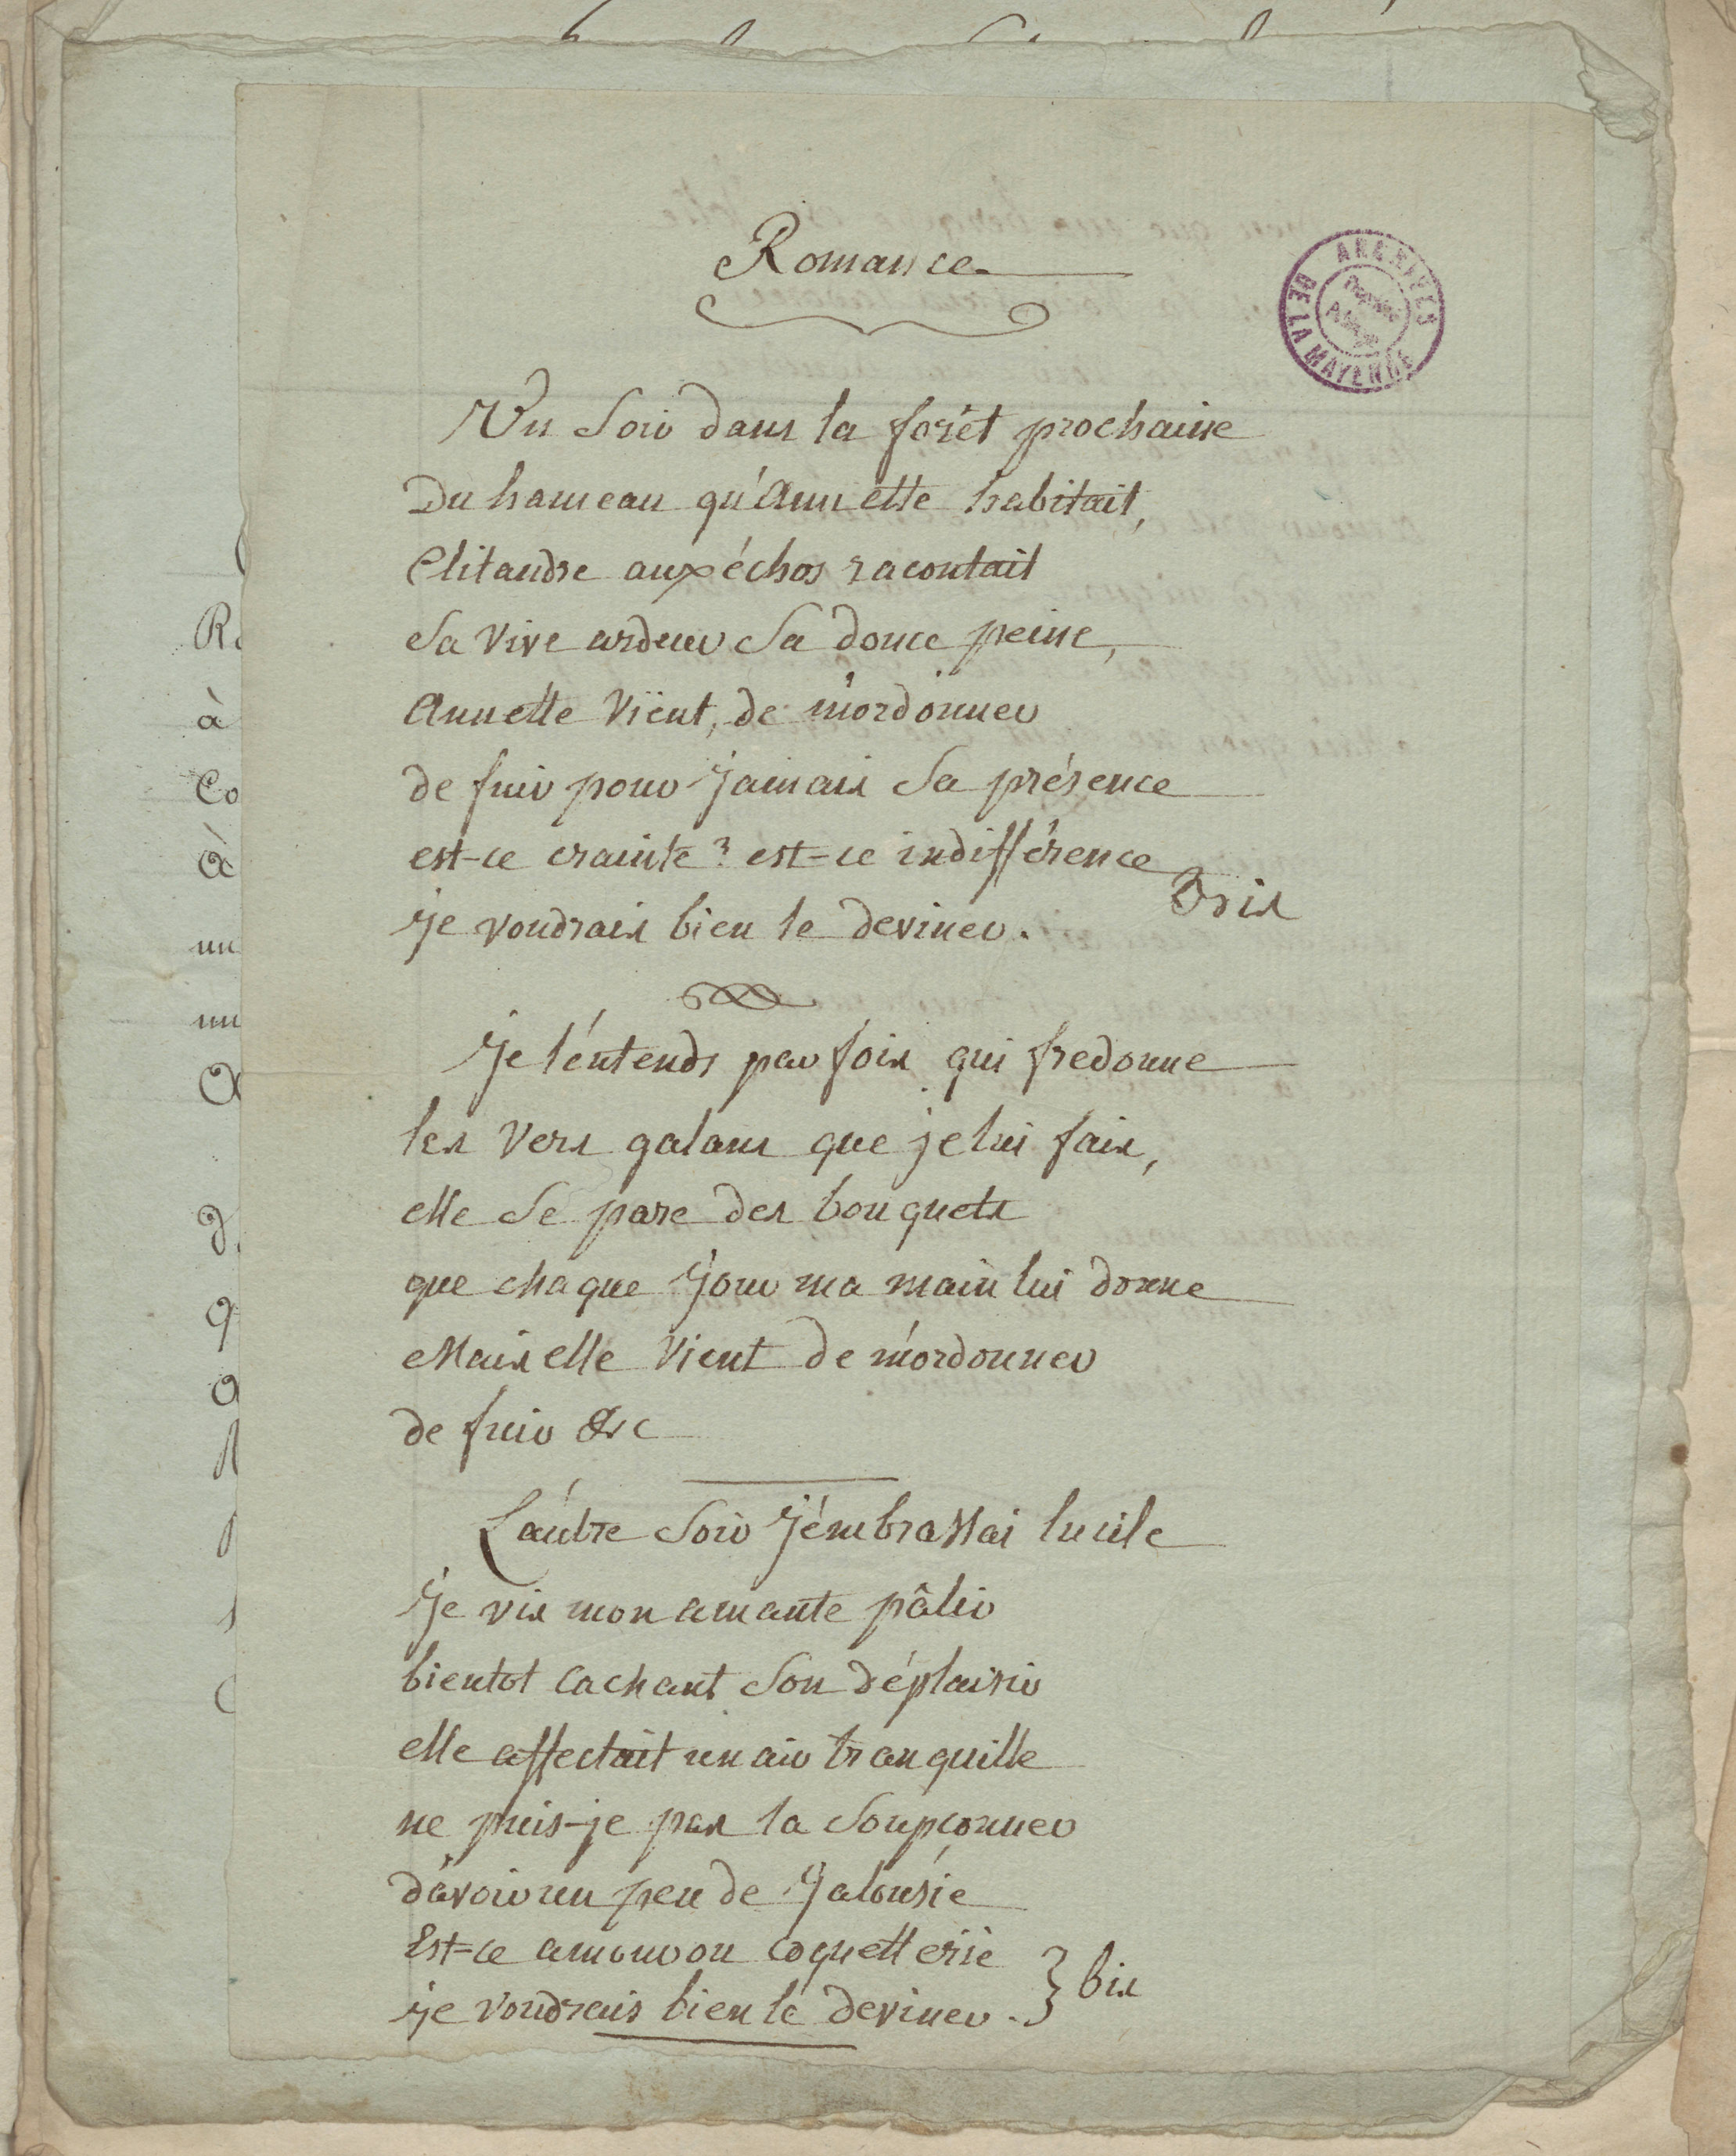 Romance
ARCHIVES
DE LA MAYENNE
Un soir dans la forêt prochaine
Du hameau qu'Annette habitait,
Clitandre aux échos racontait
Sa vive ardeur Sa douce peine,
Annette vient, de m'ordonner
de fuir pour jamais Sa présence
est-ce crainte? est-ce indifférence
bis
je voudrais bien le deviner.
Je l'entends par fois qui fredonne
les vers galans que je lui fais,
elle Se pare des bouquets
que chaque jour ma main lui donne
Mais elle vient de m'ordonner
de fuir &c
L'autre Soir j'embrassai lucile
je vis mon amante pâlir
bientot cachant Son déplaisir
elle affectait un air tranquille
ne puis-je pas la Soupçonner
d'avoir un peu de jalousie
Est-ce amour ou coquetterie
bis
je voudrais bien le deviner.
à
Co
à
un
un